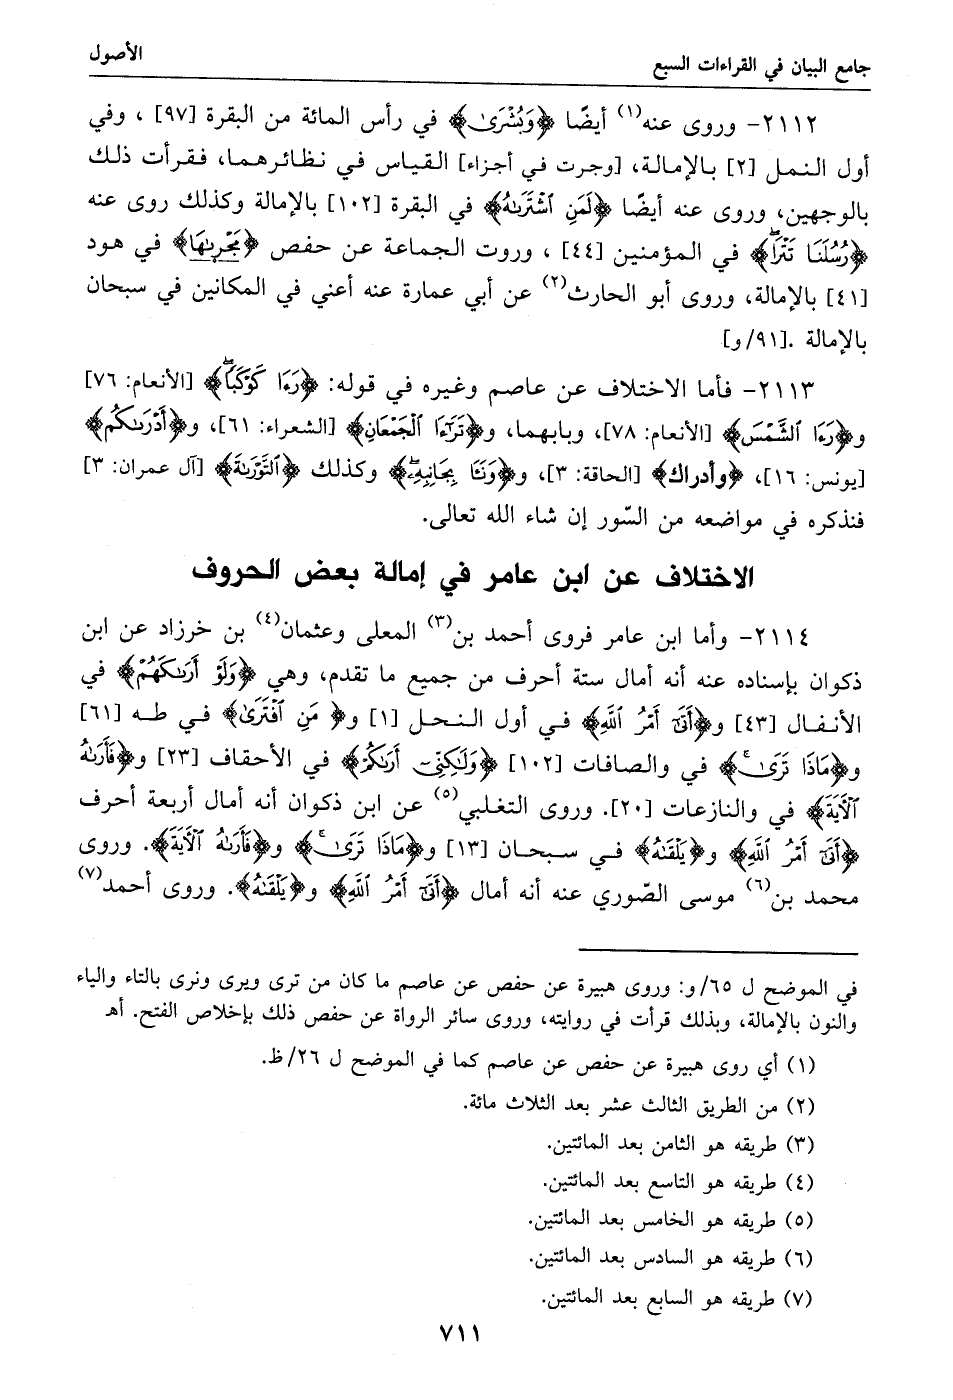 جامع البيان في القراءات السبع
الأصول
٢١١٢- وروى عنه(١) أيضًا ﴿وَبُشْرَىٰ﴾ في رأس المائة من البقرة [٩٧] ، وفي
أول النمل [٢] بالإمالة، [وجرت في أجزاء] القياس في نظائرهما، فقرأت ذلك
بالوجهين، وروى عنه أيضًا ﴿لَمَنِ ٱشْتَرَىٰهُ﴾ في البقرة [١٠٢] بالإمالة وكذلك روى عنه
﴿رُسُلَنَا تَتْرَا﴾ في المؤمنين [٤٤] ، وروت الجماعة عن حفص ﴿مَجْرٜىٰهَا﴾ في هود
[٤١] بالإمالة، وروى أبو الحارث(٢) عن أبي عمارة عنه أعني في المكانين في سبحان
بالإمالة .[٩١/و]
٢١١٣- فأما الاختلاف عن عاصم وغيره في قوله: ﴿رَءَا كَوْكَبًا﴾ [الأنعام: ٧٦]
و﴿رَءَا ٱلشَّمْسَ﴾ [الأنعام: ٧٨]، وبابهما، و﴿تَرَٰٓءَا ٱلْجَمْعَانِ﴾ [الشعراء: ٦١]، و﴿أَدْرَىٰكُم﴾
[يونس: ١٦]، ﴿وأدراك﴾ [الحاقة: ٣]، و﴿وَنَـَٔا بِجَانِبِهِۦ﴾ وكذلك ﴿ٱلتَّوْرَىٰةَ﴾ [آل عمران: ٣]
فنذكره في مواضعه من السّور إن شاء الله تعالى.
الاختلاف عن ابن عامر في إمالة بعض الحروف
٢١١٤- وأما ابن عامر فروى أحمد بن(٣) المعلى وعثمان(٤) بن خرزاد عن ابن
ذكوان بإسناده عنه أنه أمال ستة أحرف من جميع ما تقدم، وهي ﴿وَلَوْ أَرَىٰكَهُمْ﴾ في
الأنفال [٤٣] و﴿أَتَىٰٓ أَمْرُ ٱللَّهِ﴾ في أول النحل [١] و﴿مَنِ ٱفْتَرَىٰ﴾ في طه [٦١]
و﴿مَاذَا تَرَىٰ﴾ في والصافات [١٠٢] ﴿وَلَٰكِنِّيٓ أَرَىٰكُمْ﴾ في الأحقاف [٢٣] و﴿فَأَرَىٰهُ
ٱلْأَيَةَ﴾ في والنازعات [٢٠]. وروى التغلبي(٥) عن ابن ذكوان أنه أمال أربعة أحرف
﴿أَتَىٰٓ أَمْرُ ٱللَّهِ﴾ و﴿يَلْقَىٰهُ﴾ في سبحان [١٣] و﴿مَاذَا تَرَىٰ﴾ و﴿فَأَرَىٰهُ ٱلْأَيَةَ﴾. وروى
محمد بن(٦) موسى الصّوري عنه أنه أمال ﴿أَتَىٰٓ أَمْرُ ٱللَّهِ﴾ و﴿يَلْقَىٰهُ﴾. وروى أحمد(٧)
في الموضح ل ٦٥/و: وروى هبيرة عن حفص عن عاصم ما كان من ترى ويرى ونرى بالتاء والياء
والنون بالإمالة، وبذلك قرأت في روايته، وروى سائر الرواة عن حفص ذلك بإخلاص الفتح. اهـ
(١) أي روى هبيرة عن حفص عن عاصم كما في الموضح ل ٢٦/ظ.
(٢) من الطريق الثالث عشر بعد الثلاث مائة.
(٣) طريقه هو الثامن بعد المائتين.
(٤) طريقه هو التاسع بعد المائتين.
(٥) طريقه هو الخامس بعد المائتين.
(٦) طريقه هو السادس بعد المائتين.
(٧) طريقه هو السابع بعد المائتين.
٧١١